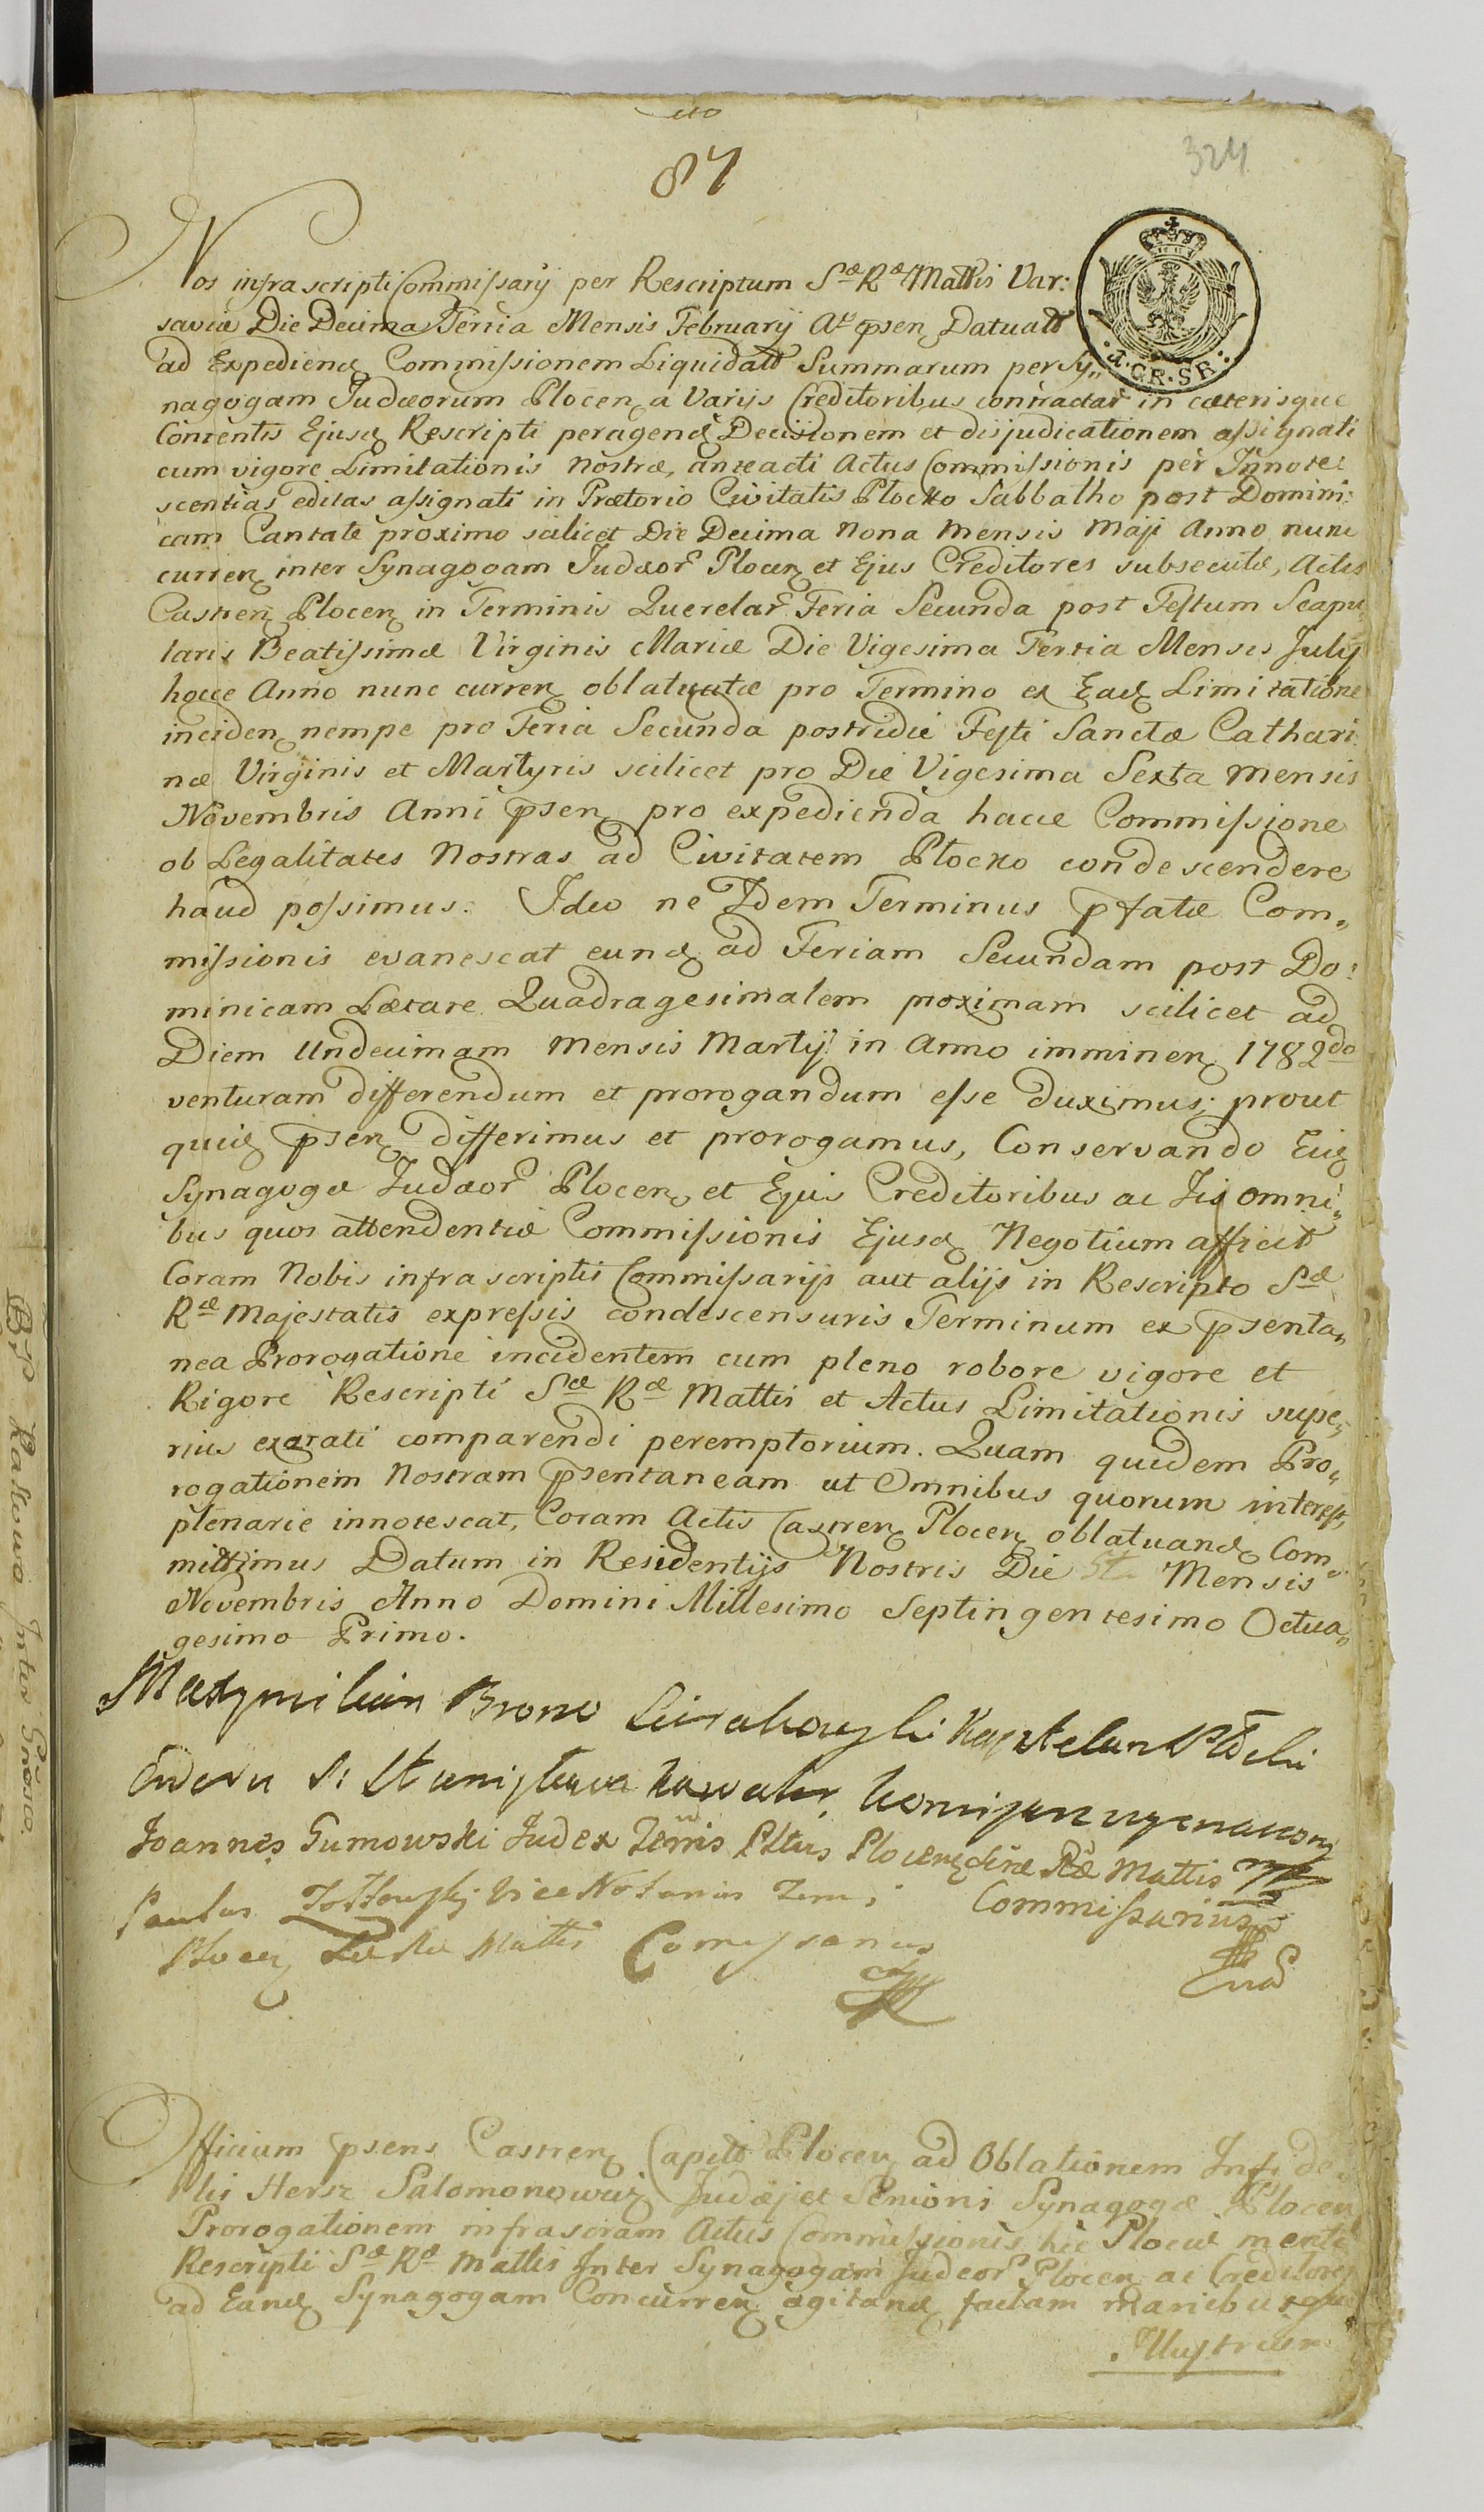 87
324
Nos infrascripti Commissarij per Rescriptum Sæ Ræ Mattis Var:
saviæ Die Decima Tertia Mensis Februarij Ai psen Datuatt
ad Expediend Commissionem Liquidatt Summarum per Sy„
nagogam Judæorum Plocen a Varijs Creditoribus contractar in cæterisque
Contentis Ejusd Rescripti peragend Decisionem et disjudicationem assignati
cum vigore Limitationis Nostræ, anteacti Actus Commissionis per Innote:
scentias editas assignati in Prætorio Civitatis Plocko Sabbatho post Domini:
cam Cantate proximo scilicet Die Decima Nona Mensis Maji Anno nunc
curren inter Synagogam Judæor Plocen et Ejus Creditores subsecutæ, Actis
Castren Plocen in Terminis Querelar Feria Secunda post Festum Scapu„
laris Beatissimæ Virginis Mariæ Die Vigesima Tertia Mensis Julij
hocce Anno nunc curren oblatuatæ pro Termino ex Ead Limitatione
inciden nempe pro Feria Secunda postridie Festi Sanctæ Cathari:
næ Virginis et Martyris scilicet pro Die Vigesima Sexta Mensis
Novembris Anni psen pro expedienda hacce Commissione
ob Legalitates Nostras ad Civitatem Plocko condescendere
haud possimus. Ideo ne Idem Terminus pfatæ Com„
missionis evanescat eund ad Feriam Secundam post Do:
minicam Lætare Quadragesimalem proximam scilicet ad
Diem Undecimam Mensis Martij in Anno imminen 1782do
venturam differendum et prorogandum esse duximus; prout
quid psen differimus et prorogamus, Conservando Eid
Synagogæ Judæor Plocen et Ejus Creditoribus ac Iis omni„
bus quos attendentiæ Commissionis Ejusd Negotium afficit
Coram Nobis infrascriptis Commissarijs aut alijs in Rescripto Sæ
Ræ Majestatis expressis condescensuris Terminum ex psenta„
nea Prorogatione incidentem cum pleno robore vigore et
Rigore Rescripti Sæ Ræ Mattis et Actus Limitationis supe„
rius exarati comparendi peremptorium. Quam quidem Pro„
rogationem Nostram psentaneam ut Omnibus quorum interest,
plenarie innotescat, Coram Actis Castren Plocen oblatuand Com„
mittimus Datum in Residentijs Nostris Die 5ta Mensis
Novembris Anno Domini Millesimo Septingentesimo Octua„
gesimo Primo.
Maxymilian Bromo Kasztelan
Orderu S: Stanisława kawaler,
Joannes Gumowski Judex Terris Pltus Plocen Sæ Ræ Mattis
Commissarius
Paulus Vice Notarius Terris
Plocen Sæ Ræ Mattis Comissarius
Officium psens Castren Capitt Plocen ad Oblationem Infide„
lis Hersz Salomonowicz Judæi et Senioris Synagogæ Plocen
Prorogationem infrascram Actus Commissionis hic Plociæ mente
Rescripti Sæ Ræ Mattis Inter Synagogam Judeor Plocen ac Creditores
ad Eand Synagogam Concurren agitand factam manibusque
Illustrism